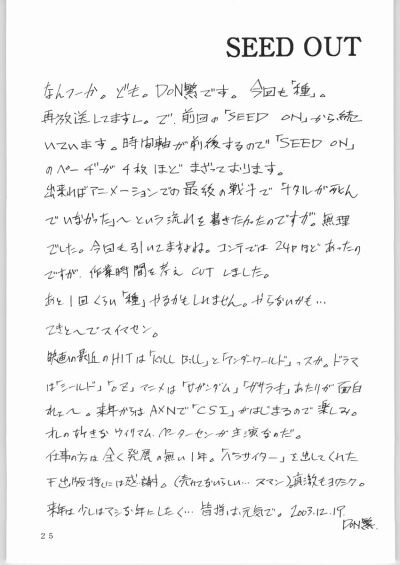 SEED OUT
なんつーか。ども。DON繁です。今回も「種」。
再放送してますし。で、前回の「SEED ON」から続
いています。時間軸が前後するので「SEED ON」
のページが4枚ほどまざっております。
出来ればアニメーションでの最後の戦斗で「ナタルが死ん
でいなかった」〜という流れを書きたかったのですが。無理
でした。今回も引いてますよね。コンテでは24Pほどあったの
ですが、作業時間を考えCUTしました。
あと1回くらい「種」やるかもしれません。やらないかも…
てきと〜でスイマセン。
映画の最近のHITは「KILL BILL」と「アンダーワールド」っスか。ドラマ
は「シールド」「OZ」アニメは「サガンダム」「ガサラオ」あたりが面白
れェ〜。来年からはAXNで「CSI」がはじまるので楽しみ。
オレの好きなウィリアム ピーターセンが主演なのだ。
仕事の方は全く発展の無い1年。「パラサイター」を出してくれた
出版様には感謝。(売れてないらしい…スマン)
来年は少しはマシな年にしたく…皆様は元気で。2003.12.19
DON繁.
25